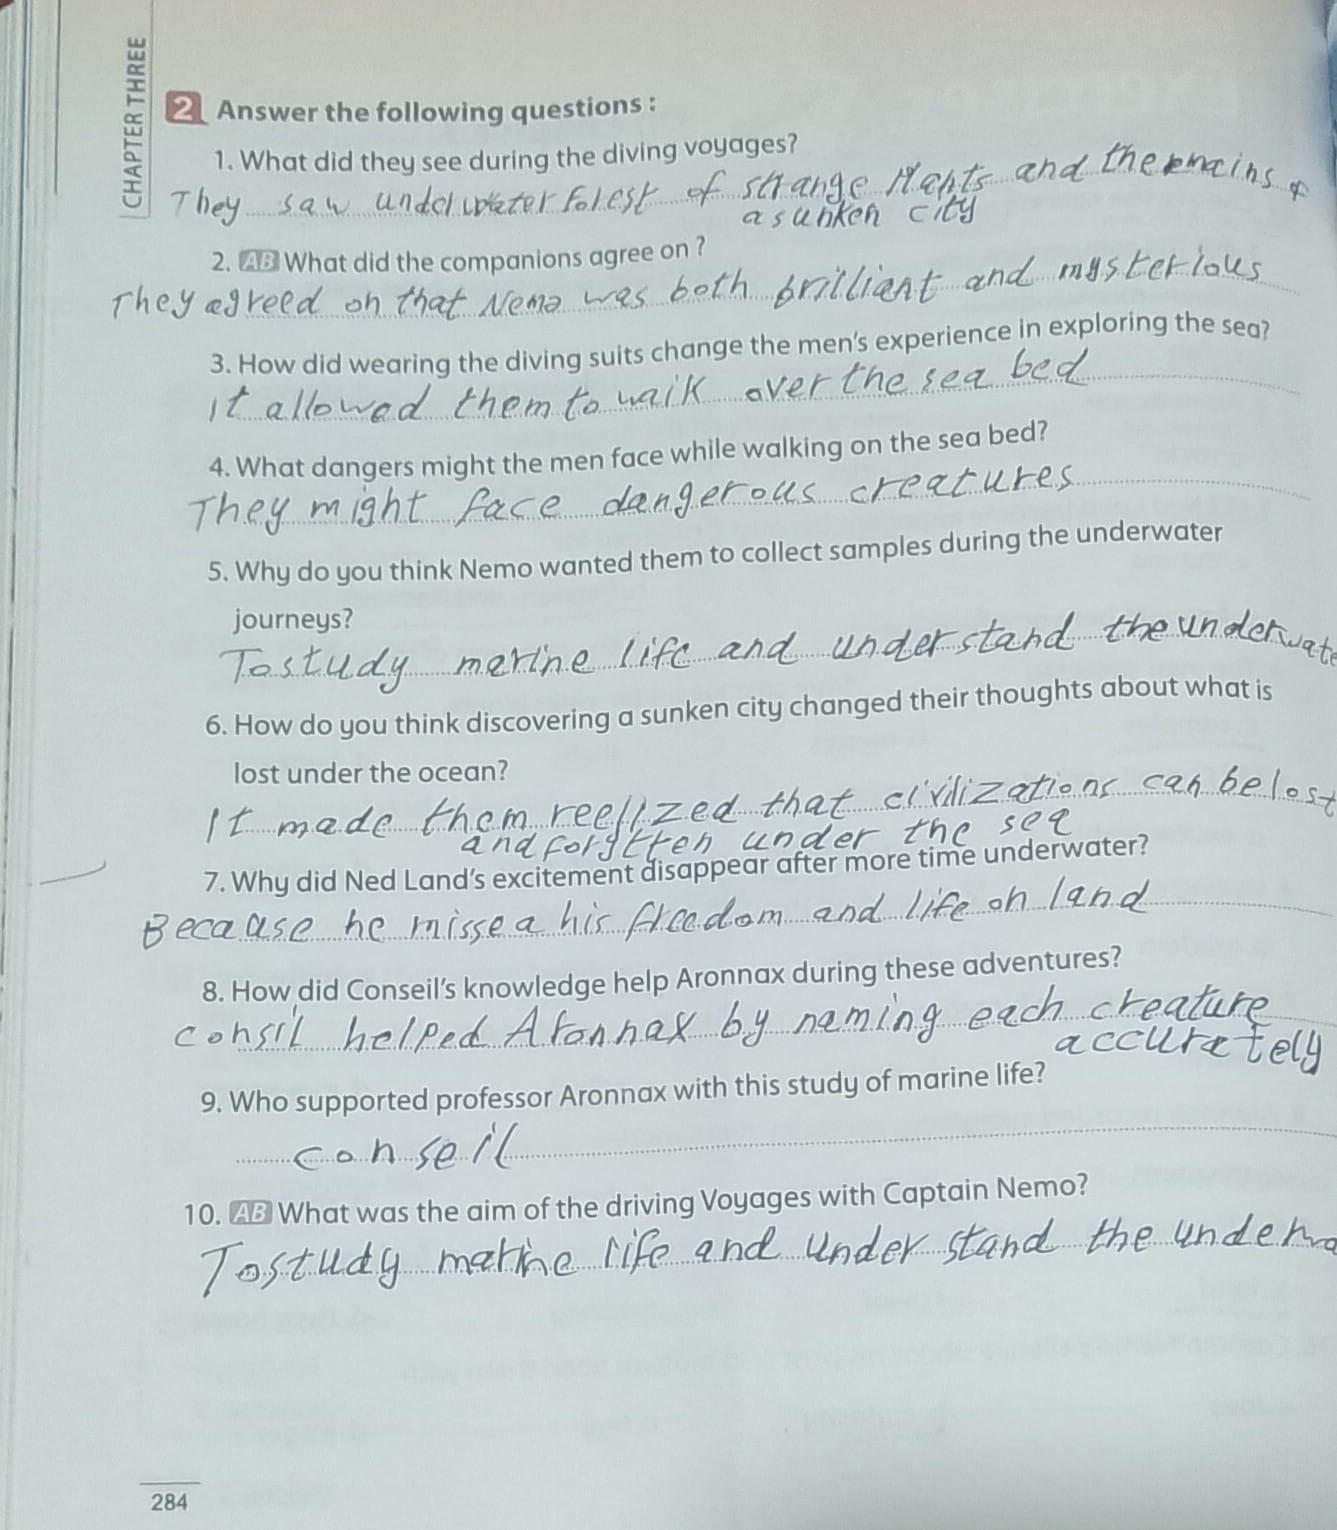 CHAPTER THREE
2 Answer the following questions :
1. What did they see during the diving voyages?
They saw underwater forest of strange Plants and the remains of
a sunken city
2. AB What did the companions agree on ?
They agreed on that Nemo was both brilliant and mysterious
3. How did wearing the diving suits change the men's experience in exploring the sea?
it allowed them to walk over the sea bed
4. What dangers might the men face while walking on the sea bed?
They might face dangerous creatures
5. Why do you think Nemo wanted them to collect samples during the underwater
journeys?
To study marine life and understand the underwate
6. How do you think discovering a sunken city changed their thoughts about what is
lost under the ocean?
It made them reelized that civilizations can be lost
and forgtten under the sea
7. Why did Ned Land's excitement disappear after more time underwater?
Because he missed his freedom and life on land
8. How did Conseil's knowledge help Aronnax during these adventures?
consil helped Aronnax by naming each creature
accurately
9. Who supported professor Aronnax with this study of marine life?
conseil
10. AB What was the aim of the driving Voyages with Captain Nemo?
To study marine life and understand the underwa
284